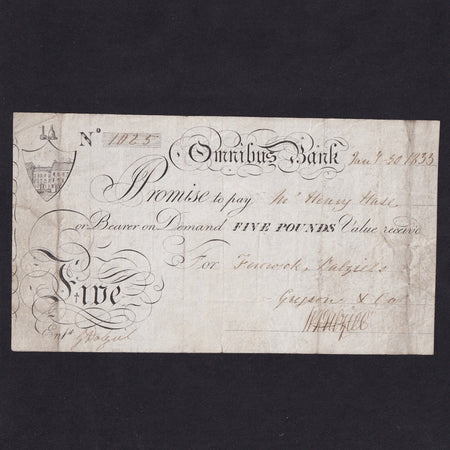 Nº 1025
Omnibus Bank Jany 30 1833
Promise to pay Mr Henry Hase
or Bearer on Demand FIVE POUNDS Value receive
For Fenwick,
Five Gregson & Co
Entd